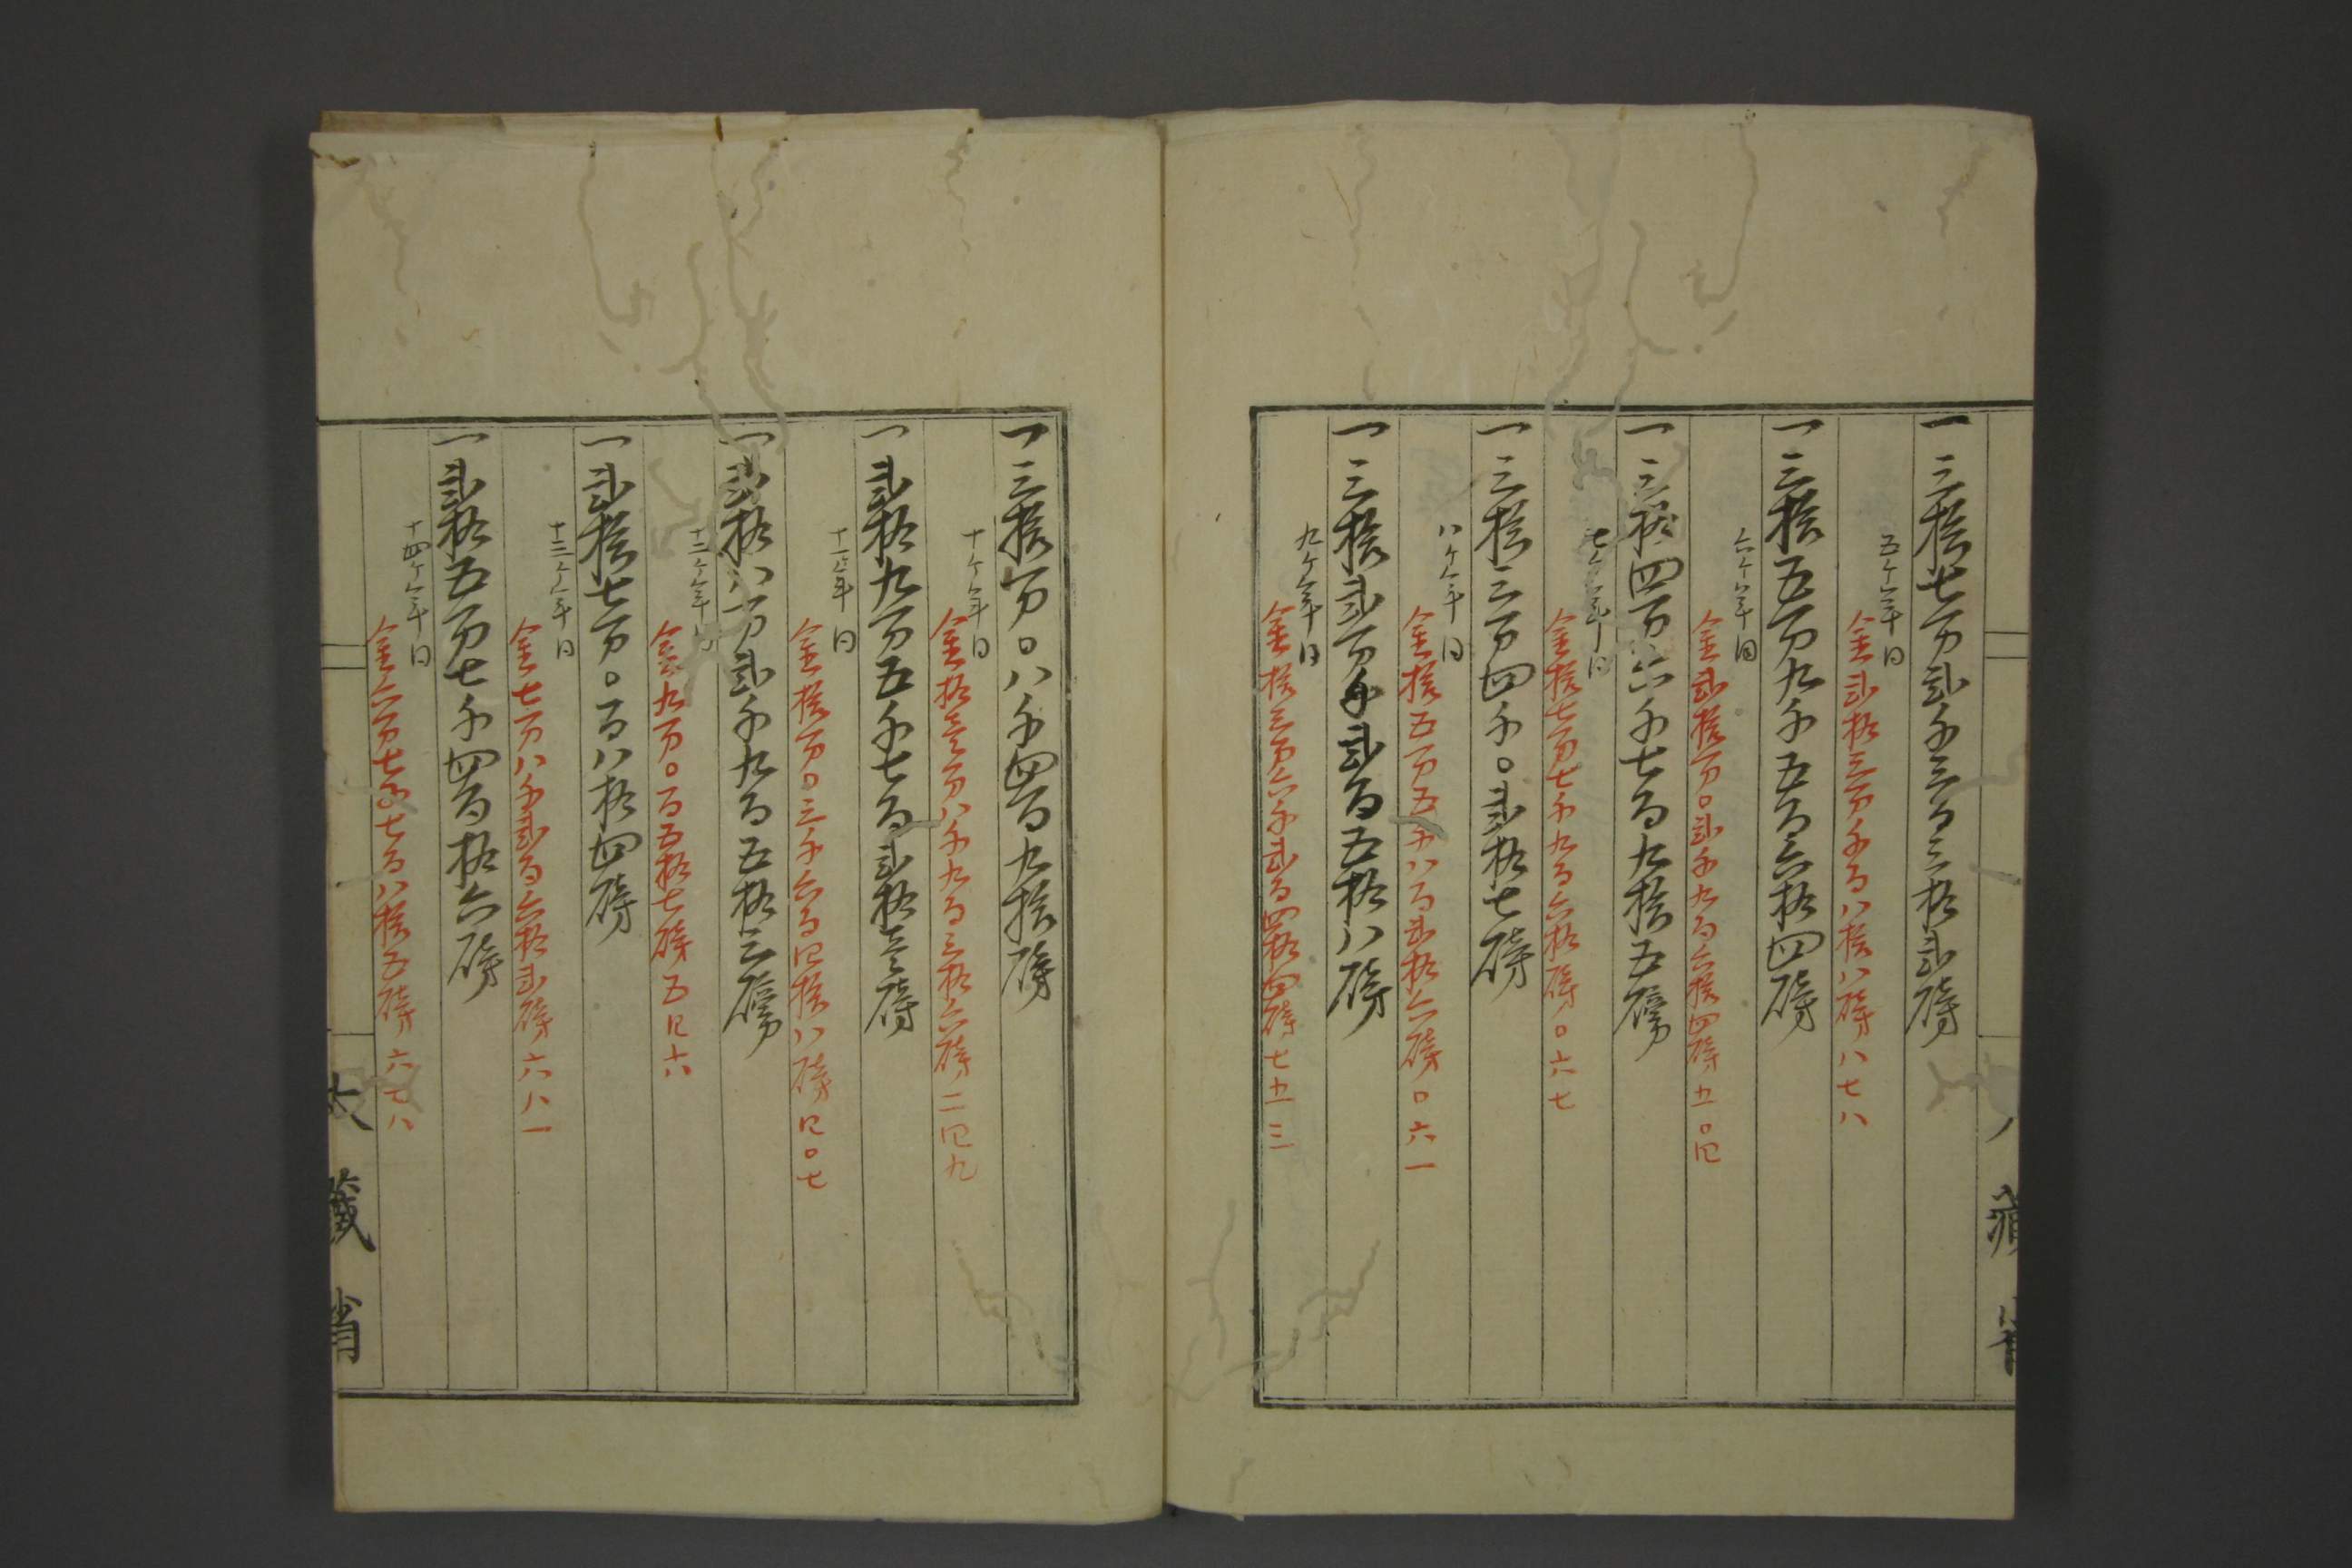 一三拾七万弐千三百三拾弐磅
五ケ年目
金弐拾三万千百八拾八磅八七八
一三拾五万九千五百六拾四磅
六ケ年目
金弐拾万〇弐千九百六拾四磅五〇四
一三拾四万六千七百九拾五磅
七ケ年目
金拾七万七千九百六拾磅〇六七
一三拾三万四千〇弐拾七磅
八ケ年目
金拾五万五千八百弐拾六磅〇六一
一三拾弐万千弐百五拾八磅
九ケ年目
金拾三万六千弐百四拾四磅七五三
一三拾万〇八千四百九拾磅
十ケ年目
金拾壱万八千九百三拾六磅二四九
一弐拾九万五千七百弐拾壱磅
十一ケ年目
金拾万〇三千六百四拾八磅四〇七
一弐拾八万弐千九百五拾三磅
十二ケ年目
金九万〇百五拾七磅五四六
一弐拾七万〇百八拾四磅
十三ケ年目
金七万八千弐百六拾弐磅六八一
一弐拾五万七千四百拾六磅
十四ケ年目
金六万七千七百八拾五磅六七八
大藏省